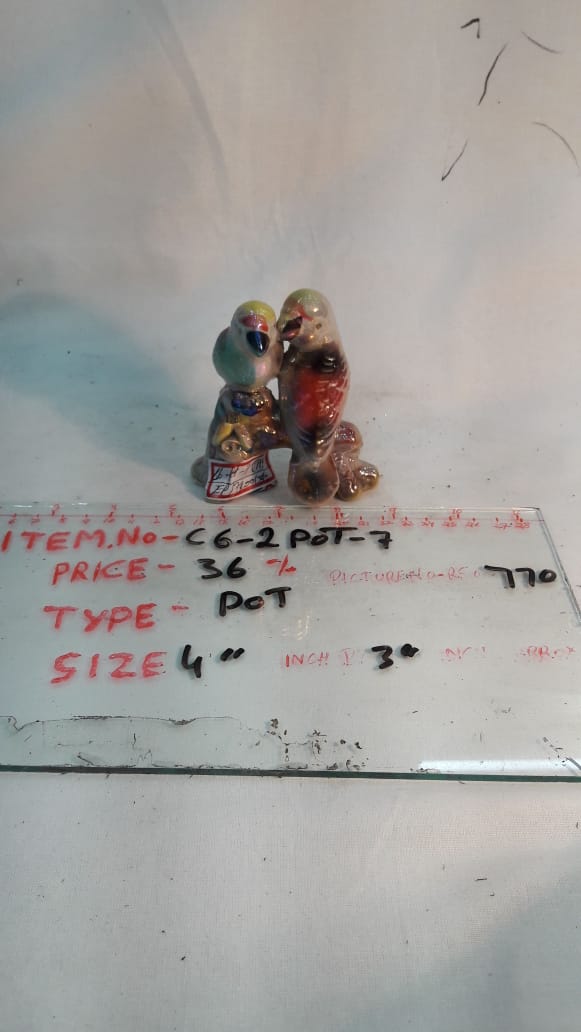 ITEM.NO-C6-2 POT-7
PRICE- 36 %
PICTURE 770
TYPE- POT
SIZE 4" INCH 3"